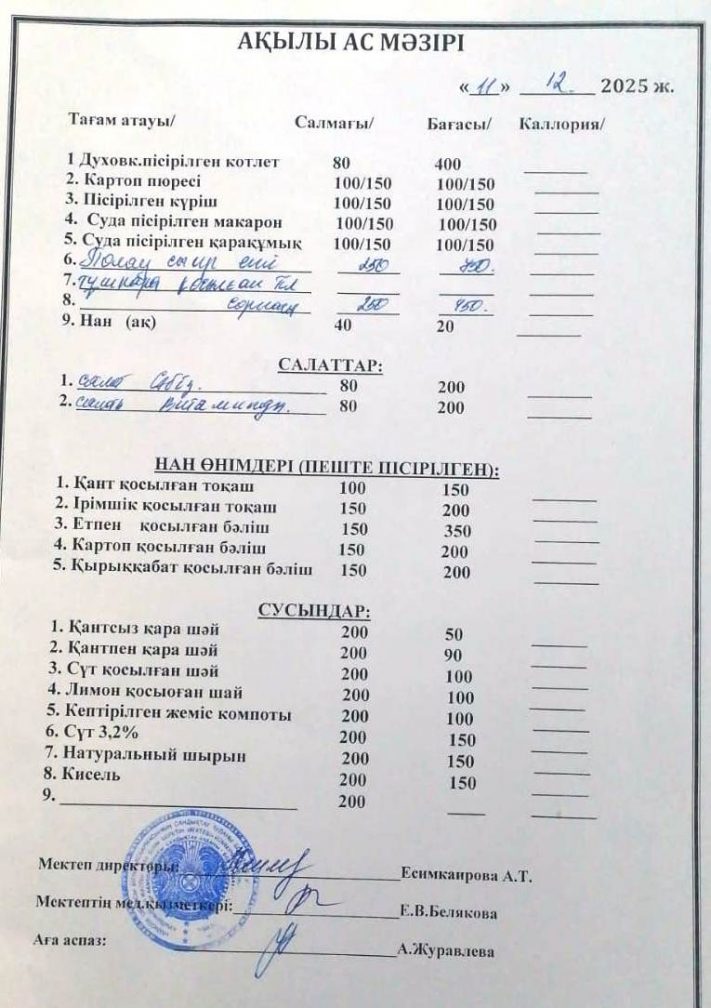 АҚЫЛЫ АС МӘЗІРІ
«11» 12. 2025 ж.
Тағам атауы/ Салмағы/ Бағасы/ Каллория/
1 Духовк.пісірілген котлет 80 400
2. Картоп пюресі 100/150 100/150
3. Пісірілген күріш 100/150 100/150
4. Суда пісірілген макарон 100/150 100/150
5. Суда пісірілген қарақұмық 100/150 100/150
6. Полау сыыр еті 250
7. қосылған
8. 250
9. Нан (ақ) 40 20
САЛАТТАР:
1. салат Сәбіз. 80 200
2. салат Витаминді. 80 200
НАН ӨНІМДЕРІ (ПЕШТЕ ПІСІРІЛГЕН):
1. Қант қосылған тоқаш 100 150
2. Ірімшік қосылған тоқаш 150 200
3. Етпен қосылған бәліш 150 350
4. Картоп қосылған бәліш 150 200
5. Қырыққабат қосылған бәліш 150 200
СУСЫНДАР:
1. Қантсыз қара шәй 200 50
2. Қантпен қара шәй 200 90
3. Сүт қосылған шәй 200 100
4. Лимон қосыоған шай 200 100
5. Кептірілген жеміс компоты 200 100
6. Сүт 3,2% 200 150
7. Натуральный шырын 200 150
8. Кисель 200 150
9. 200
Мектеп директоры: Есимкаирова А.Т.
Мектептің мед.қызметкері: Е.В.Белякова
Аға аспаз: А.Журавлева